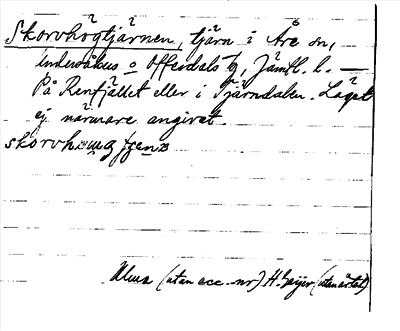 Skorvhögtjärnen, tjärn i Åre sn,
Undersåkers o Offerdals tg, Jämtl. l. —
På Renfjället eller i Tjärndalen. Läget
ej närmare angivet.
skorvhöug
Ulma (utan acc.-nr) H. Geijer (utan årtal)